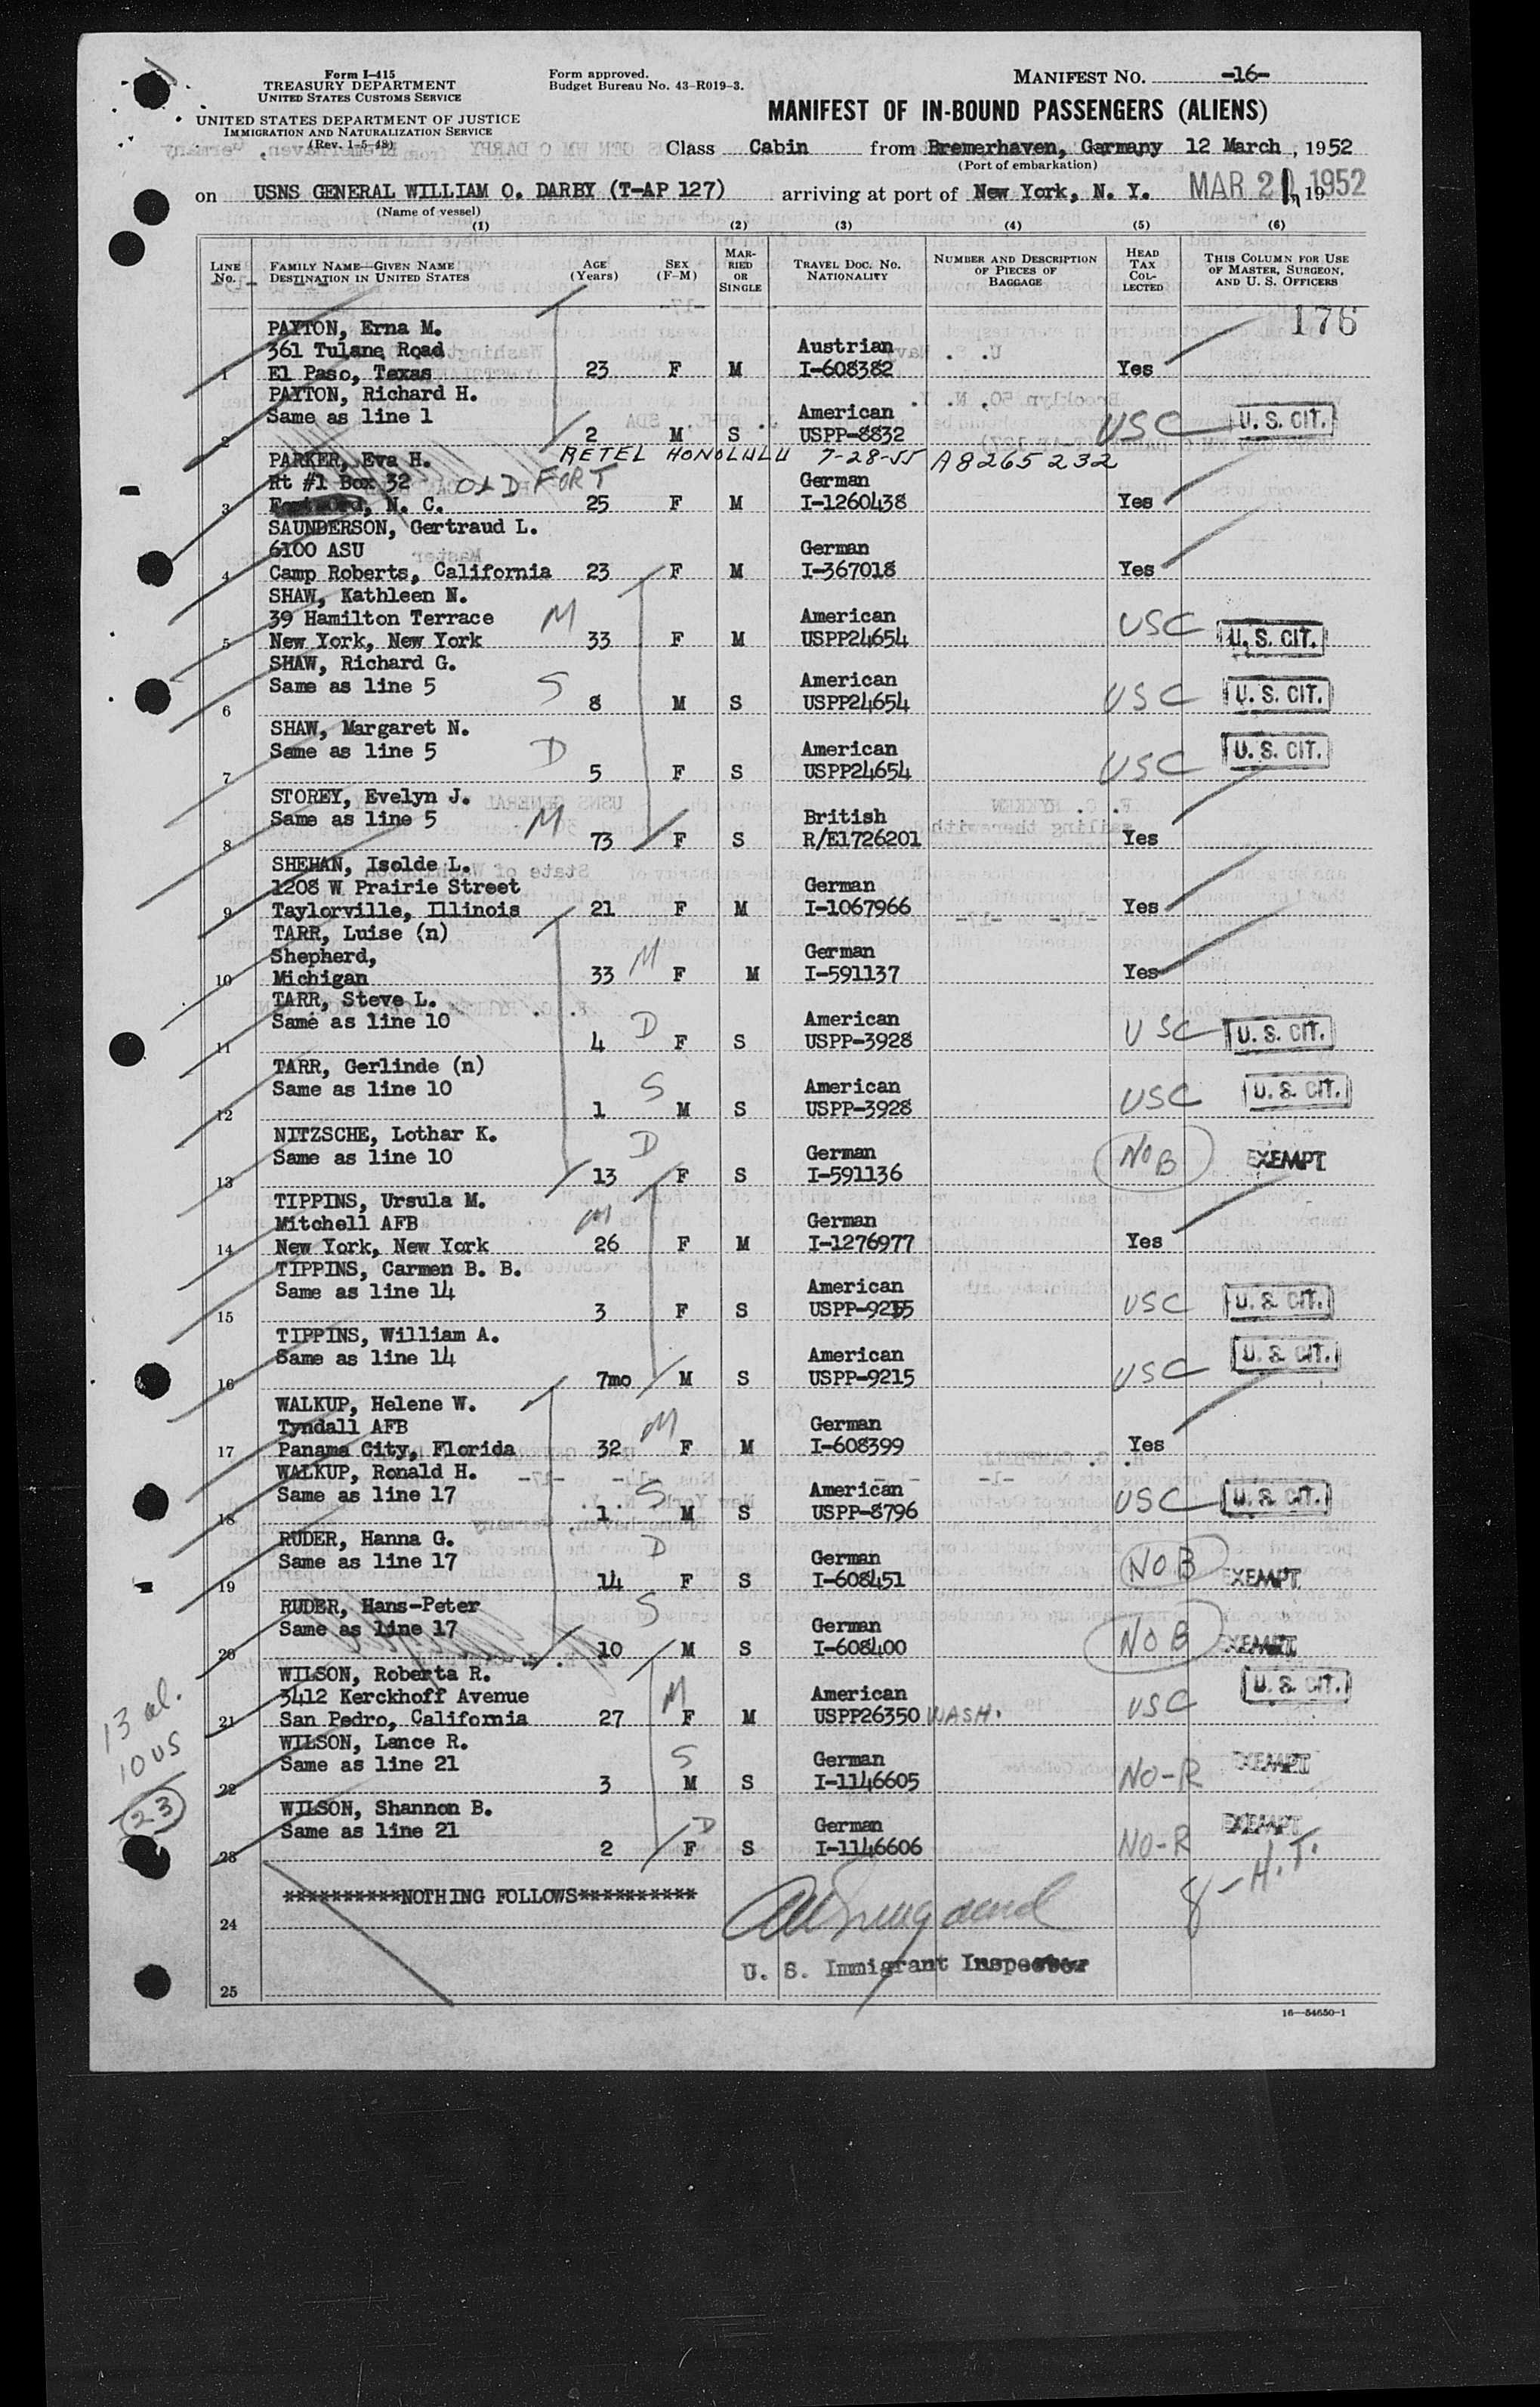 Form I-415
TREASURY DEPARTMENT
UNITED STATES CUSTOMS SERVICE
UNITED STATES DEPARTMENT OF JUSTICE
IMMIGRATION AND NATURALIZATION SERVICE
(Rev. 1-5-48)
Form approved.
Budget Bureau No. 43-R019-3.
MANIFEST NO. -16-
MANIFEST OF IN-BOUND PASSENGERS (ALIENS)
Class Cabin from Bremerhaven, Germany 12 March, 1952
(Port of embarkation)
on USNS GENERAL WILLIAM O. DARBY (T-AP 127) arriving at port of New York, N. Y. MAR 21 1952
(Name of vessel)
(1) (2) (3) (4) (5) (6)
LINE NO. FAMILY NAME—GIVEN NAME DESTINATION IN UNITED STATES AGE (Years) SEX (F-M) MARRIED OR SINGLE TRAVEL DOC. NO. NATIONALITY NUMBER AND DESCRIPTION OF PIECES OF BAGGAGE HEAD TAX COLLECTED THIS COLUMN FOR USE OF MASTER, SURGEON, AND U. S. OFFICERS
176
PAYTON, Erna M.
361 Tulane Road Austrian
1 El Paso, Texas 23 F M I-608382 Yes
PAYTON, Richard H.
Same as line 1 American
2 2 M S USPP-8832 USC U. S. CIT.
RETEL HONOLULU 7-28-55 A8265232
PARKER, Eva H.
Rt #1 Box 32 OLD FORT German
3 N. C. 25 F M I-1260438 Yes
SAUNDERSON, Gertraud L.
6100 ASU German
4 Camp Roberts, California 23 F M I-367018 Yes
SHAW, Kathleen N.
39 Hamilton Terrace M American
5 New York, New York 33 F M USPP24654 USC U. S. CIT.
SHAW, Richard G.
Same as line 5 S American
6 8 M S USPP24654 USC U. S. CIT.
SHAW, Margaret N.
Same as line 5 D American
7 5 F S USPP24654 USC U. S. CIT.
STOREY, Evelyn J.
Same as line 5 M British
8 73 F S R/E1726201 Yes
SHEHAN, Isolde L.
1208 W Prairie Street German
9 Taylorville, Illinois 21 F M I-1067966 Yes
TARR, Luise (n)
Shepherd, German
10 Michigan 33 M F M I-591137 Yes
TARR, Steve L.
Same as line 10 American
11 4 D F S USPP-3928 USC U. S. CIT.
TARR, Gerlinde (n)
Same as line 10 American
12 1 S M S USPP-3928 USC U. S. CIT.
NITZSCHE, Lothar K.
Same as line 10 German
13 13 D F S I-591136 NOB EXEMPT
TIPPINS, Ursula M.
Mitchell AFB M German
14 New York, New York 26 F M I-1276977 Yes
TIPPINS, Carmen B. B.
Same as line 14 American
15 3 F S USPP-9215 USC U. S. CIT.
TIPPINS, William A.
Same as line 14 American
16 7mo M S USPP-9215 USC U. S. CIT.
WALKUP, Helene W.
Tyndall AFB M German
17 Panama City, Florida 32 F M I-608399 Yes
WALKUP, Ronald H.
Same as line 17 S American
18 1 M S USPP-8796 USC U. S. CIT.
RUDER, Hanna G.
Same as line 17 D German
19 14 F S I-608451 NOB EXEMPT
RUDER, Hans-Peter
Same as line 17 S German
20 10 M S I-608400 NOB EXEMPT
WILSON, Roberta R.
3412 Kerckhoff Avenue M American
21 San Pedro, California 27 F M USPP26350 WASH. USC U. S. CIT.
WILSON, Lance R.
Same as line 21 S German
22 3 M S I-1146605 NO-R EXEMPT
WILSON, Shannon B.
Same as line 21 D German
23 2 F S I-1146606 NO-R EXEMPT
13 al.
10 US
23
8-H.T.
**********NOTHING FOLLOWS**********
24
U. S. Immigrant Inspector
25
16—54650-1